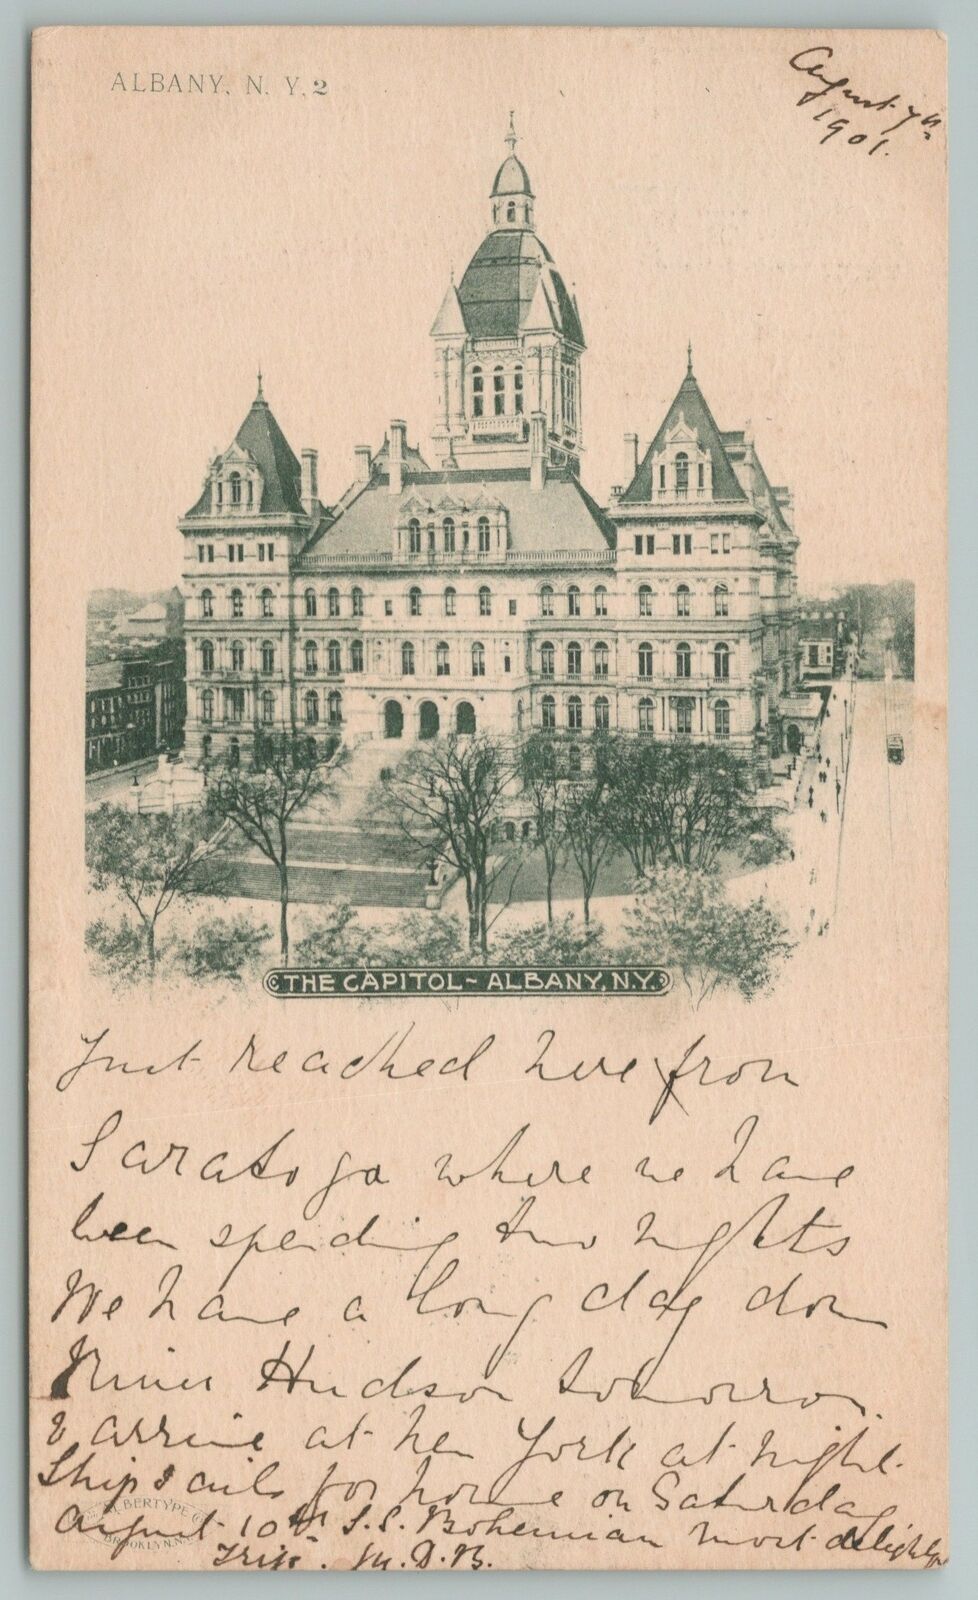 ALBANY, N. Y. 2
August 7th
1901.
THE CAPITOL ~ ALBANY, N.Y.
Just reached here from
Saratoga where we have
been spending two nights
We have a long day down
River Hudson tomorrow
& arrive at New York at night.
Ship sails for home on Saturday
August 10th S.S. Bohemian most delightful
Trip. M.D.B.
ALBERTYPE CO.
BROOKLYN, N.Y.